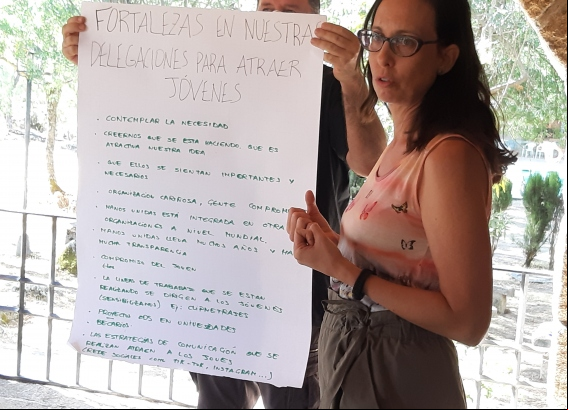 FORTALEZAS EN NUESTRA
DELEGACIONES PARA ATRAER
JÓVENES
· CONTEMPLAR LA NECESIDAD
· CREERNOS QUE SE ESTÁ HACIENDO, QUE ES
ATRACTIVA NUESTRA IDEA
· QUE ELLOS SE SIENTAN IMPORTANTES Y
NECESARIOS
· ORGANIZACIÓN CARIÑOSA, GENTE COMPROM
· MANOS UNIDAS ESTÁ INTEGRADA EN OTRA
ORGANIZACIONES A NIVEL MUNDIAL.
MANOS UNIDAS LLEVA MUCHOS AÑOS Y
MUCHA TRANSPARENCIA
· COMPROMISO DEL JOVEN
· LA LINEAS DE TRABAJO QUE SE ESTÁN
REALIZANDO SE DIRIGEN A LOS JÓVENES
(SENSIBILIZAMOS) EJ: CLIPMETRAJES
· PROYECTO ODS EN
· BECARIOS
· LAS ESTRATEGIAS DE COMUNICACIÓN QUE SE
REALIZAN ATRAEN A LOS
SOCIALES COMO TIK-TOK, INSTAGRAM....)